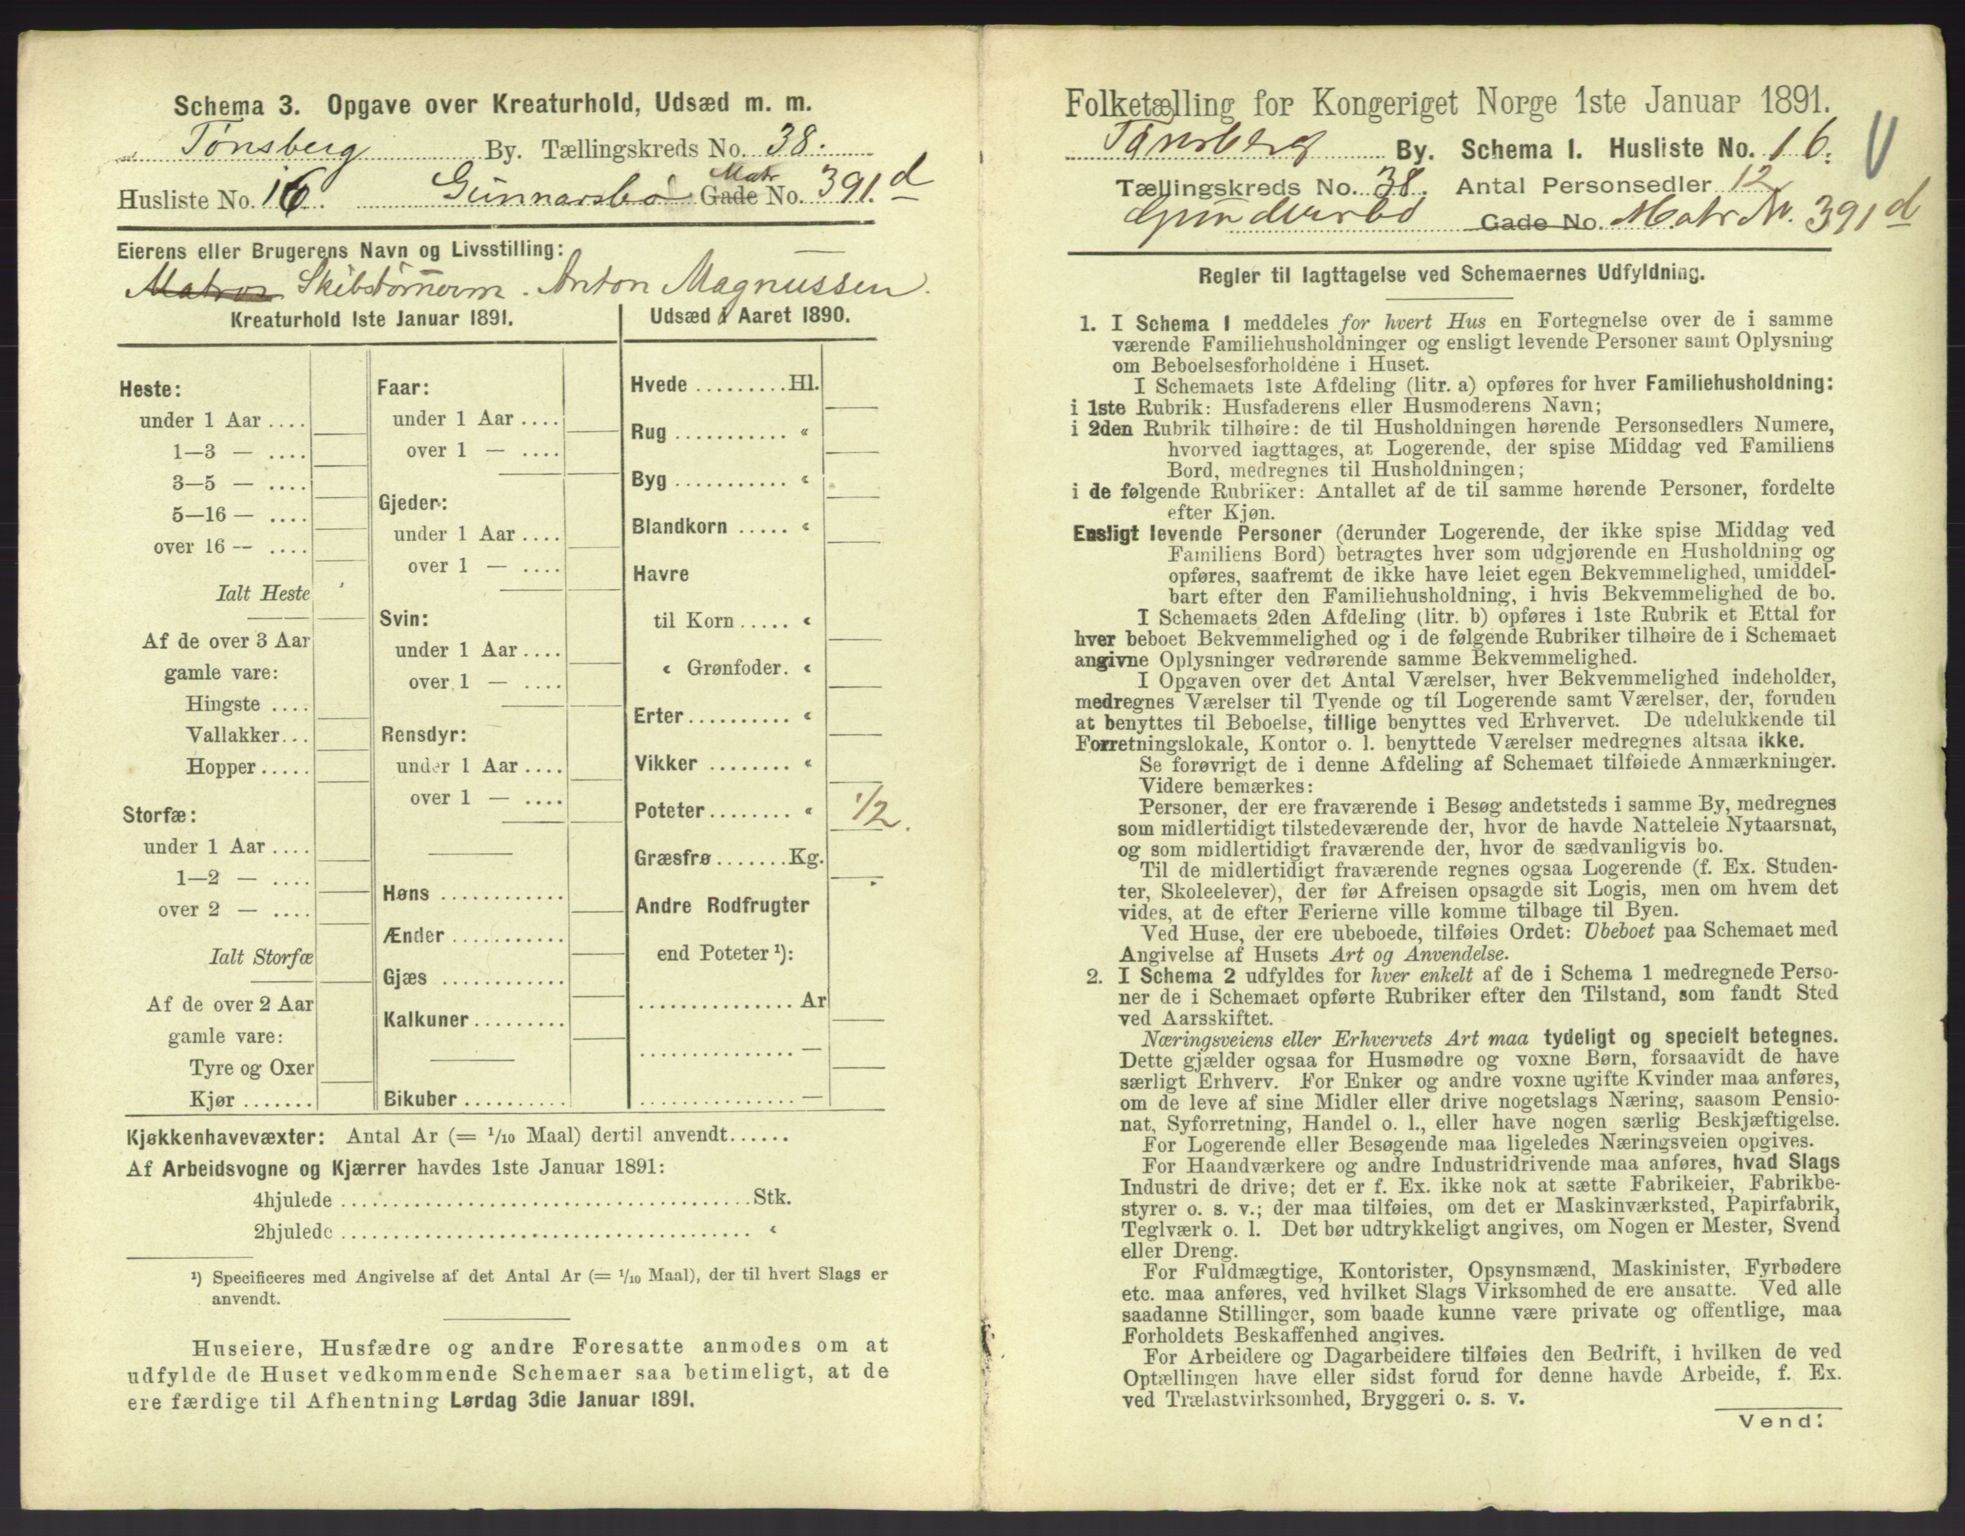 Schema 3. Opgave over Kreaturhold, Udsæd m. m.
Tønsberg By. Tællingskreds No. 38.
Husliste No. 16. Gunnarsbø Matr Gade No. 391.d
Eierens eller Brugerens Navn og Livsstilling:
Matros Skibstømerm. Anton Magnussen.
Kreaturhold 1ste Januar 1891.
Udsæd i Aaret 1890.
Heste:
under 1 Aar ....
1—3 — ....
3—5 — ....
5—16 — ....
over 16 — ....
Ialt Heste
Af de over 3 Aar
gamle vare:
Hingste ....
Vallakker...
Hopper.....
Storfæ:
under 1 Aar ....
1—2 — ....
over 2 — ....
Ialt Storfæ
Af de over 2 Aar
gamle vare:
Tyre og Oxer
Kjør .......
Faar:
under 1 Aar ....
over 1 — ....
Gjeder:
under 1 Aar ....
over 1 — ....
Svin:
under 1 Aar ....
over 1 — ....
Rensdyr:
under 1 Aar ....
over 1 — ....
Høns ............
Ænder...........
Gjæs ............
Kalkuner.........
Bikuber..........
Hvede .........Hl.
Rug ........... «
Byg ........... «
Blandkorn ..... «
Havre
til Korn ..... «
« Grønfoder. «
Erter.......... «
Vikker ........ «
Poteter........ « 1/2.
Græsfrø.......Kg.
Andre Rodfrugter
end Poteter ¹):
............... Ar
............... —
............... —
Kjøkkenhavevæxter: Antal Ar (= 1/10 Maal) dertil anvendt......
Af Arbeidsvogne og Kjærrer havdes 1ste Januar 1891:
4hjulede ........................................Stk.
2hjulede ........................................ «
¹) Specificeres med Angivelse af det Antal Ar (= 1/10 Maal), der til hvert Slags er
anvendt.
Huseiere, Husfædre og andre Foresatte anmodes om at
udfylde de Huset vedkommende Schemaer saa betimeligt, at de
ere færdige til Afhentning Lørdag 3die Januar 1891.
Folketælling for Kongeriget Norge 1ste Januar 1891.
Tønsberg By. Schema I. Husliste No. 16.
Tællingskreds No. 38. Antal Personsedler 12
Gundersbø Gade No. Matr N. 391d
Regler til Iagttagelse ved Schemaernes Udfyldning.
1. I Schema I meddeles for hvert Hus en Fortegnelse over de i samme
værende Familiehusholdninger og ensligt levende Personer samt Oplysning
om Beboelsesforholdene i Huset.
I Schemaets 1ste Afdeling (litr. a) opføres for hver Familiehusholdning:
i 1ste Rubrik: Husfaderens eller Husmoderens Navn;
i 2den Rubrik tilhøire: de til Husholdningen hørende Personsedlers Numere,
hvorved iagttages, at Logerende, der spise Middag ved Familiens
Bord, medregnes til Husholdningen;
i de følgende Rubriker: Antallet af de til samme hørende Personer, fordelte
efter Kjøn.
Ensligt levende Personer (derunder Logerende, der ikke spise Middag ved
Familiens Bord) betragtes hver som udgjørende en Husholdning og
opføres, saafremt de ikke have leiet egen Bekvemmelighed, umiddel-
bart efter den Familiehusholdning, i hvis Bekvemmelighed de bo.
I Schemaets 2den Afdeling (litr. b) opføres i 1ste Rubrik et Ettal for
hver beboet Bekvemmelighed og i de følgende Rubriker tilhøire de i Schemaet
angivne Oplysninger vedrørende samme Bekvemmelighed.
I Opgaven over det Antal Værelser, hver Bekvemmelighed indeholder,
medregnes Værelser til Tyende og til Logerende samt Værelser, der, foruden
at benyttes til Beboelse, tillige benyttes ved Erhvervet. De udelukkende til
Forretningslokale, Kontor o. l. benyttede Værelser medregnes altsaa ikke.
Se forøvrigt de i denne Afdeling af Schemaet tilføiede Anmærkninger.
Videre bemærkes:
Personer, der ere fraværende i Besøg andetsteds i samme By, medregnes
som midlertidigt tilstedeværende der, hvor de havde Natteleie Nytaarsnat,
og som midlertidigt fraværende der, hvor de sædvanligvis bo.
Til de midlertidigt fraværende regnes ogsaa Logerende (f. Ex. Studen-
ter, Skoleelever), der før Afreisen opsagde sit Logis, men om hvem det
vides, at de efter Ferierne ville komme tilbage til Byen.
Ved Huse, der ere ubeboede, tilføies Ordet: Ubeboet paa Schemaet med
Angivelse af Husets Art og Anvendelse.
2. I Schema 2 udfyldes for hver enkelt af de i Schema 1 medregnede Perso-
ner de i Schemaet opførte Rubriker efter den Tilstand, som fandt Sted
ved Aarsskiftet.
Næringsveiens eller Erhvervets Art maa tydeligt og specielt betegnes.
Dette gjælder ogsaa for Husmødre og voxne Børn, forsaavidt de have
særligt Erhverv. For Enker og andre voxne ugifte Kvinder maa anføres,
om de leve af sine Midler eller drive nogetslags Næring, saasom Pensio-
nat, Syforretning, Handel o. l., eller have nogen særlig Beskjæftigelse.
For Logerende eller Besøgende maa ligeledes Næringsveien opgives.
For Haandværkere og andre Industridrivende maa anføres, hvad Slags
Industri de drive; det er f. Ex. ikke nok at sætte Fabrikeier, Fabrikbe-
styrer o. s. v.; der maa tilføies, om det er Maskinværksted, Papirfabrik,
Teglværk o. l. Det bør udtrykkeligt angives, om Nogen er Mester, Svend
eller Dreng.
For Fuldmægtige, Kontorister, Opsynsmænd, Maskinister, Fyrbødere
etc. maa anføres, ved hvilket Slags Virksomhed de ere ansatte. Ved alle
saadanne Stillinger, som baade kunne være private og offentlige, maa
Forholdets Beskaffenhed angives.
For Arbeidere og Dagarbeidere tilføies den Bedrift, i hvilken de ved
Optællingen have eller sidst forud for denne havde Arbeide, f. Ex.
ved Trælastvirksomhed, Bryggeri o. s. v.
Vend: